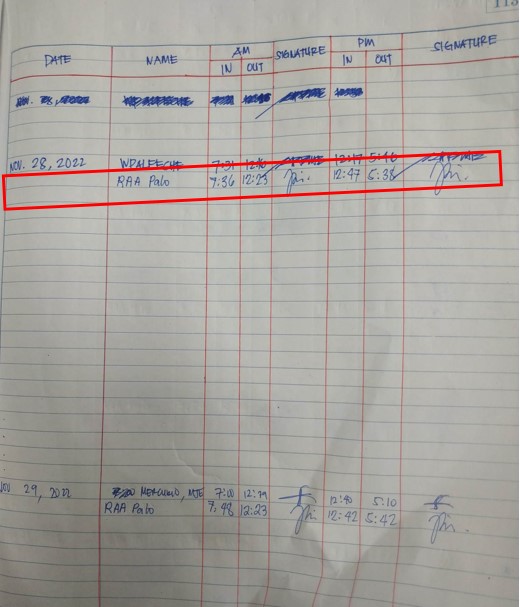 113
AM PM
DATE NAME SIGNATURE SIGNATURE
IN OUT IN OUT
NOV. 28, 2022 WDALFECHE 7:31 12:17 5:46
RAA Palo 7:36 12:23 12:47 5:38
NOV 29, 2022 MERCURIO, MJE 7:00 12:29 12:40 5:10
RAA Palo 7:48 12:23 12:42 5:42